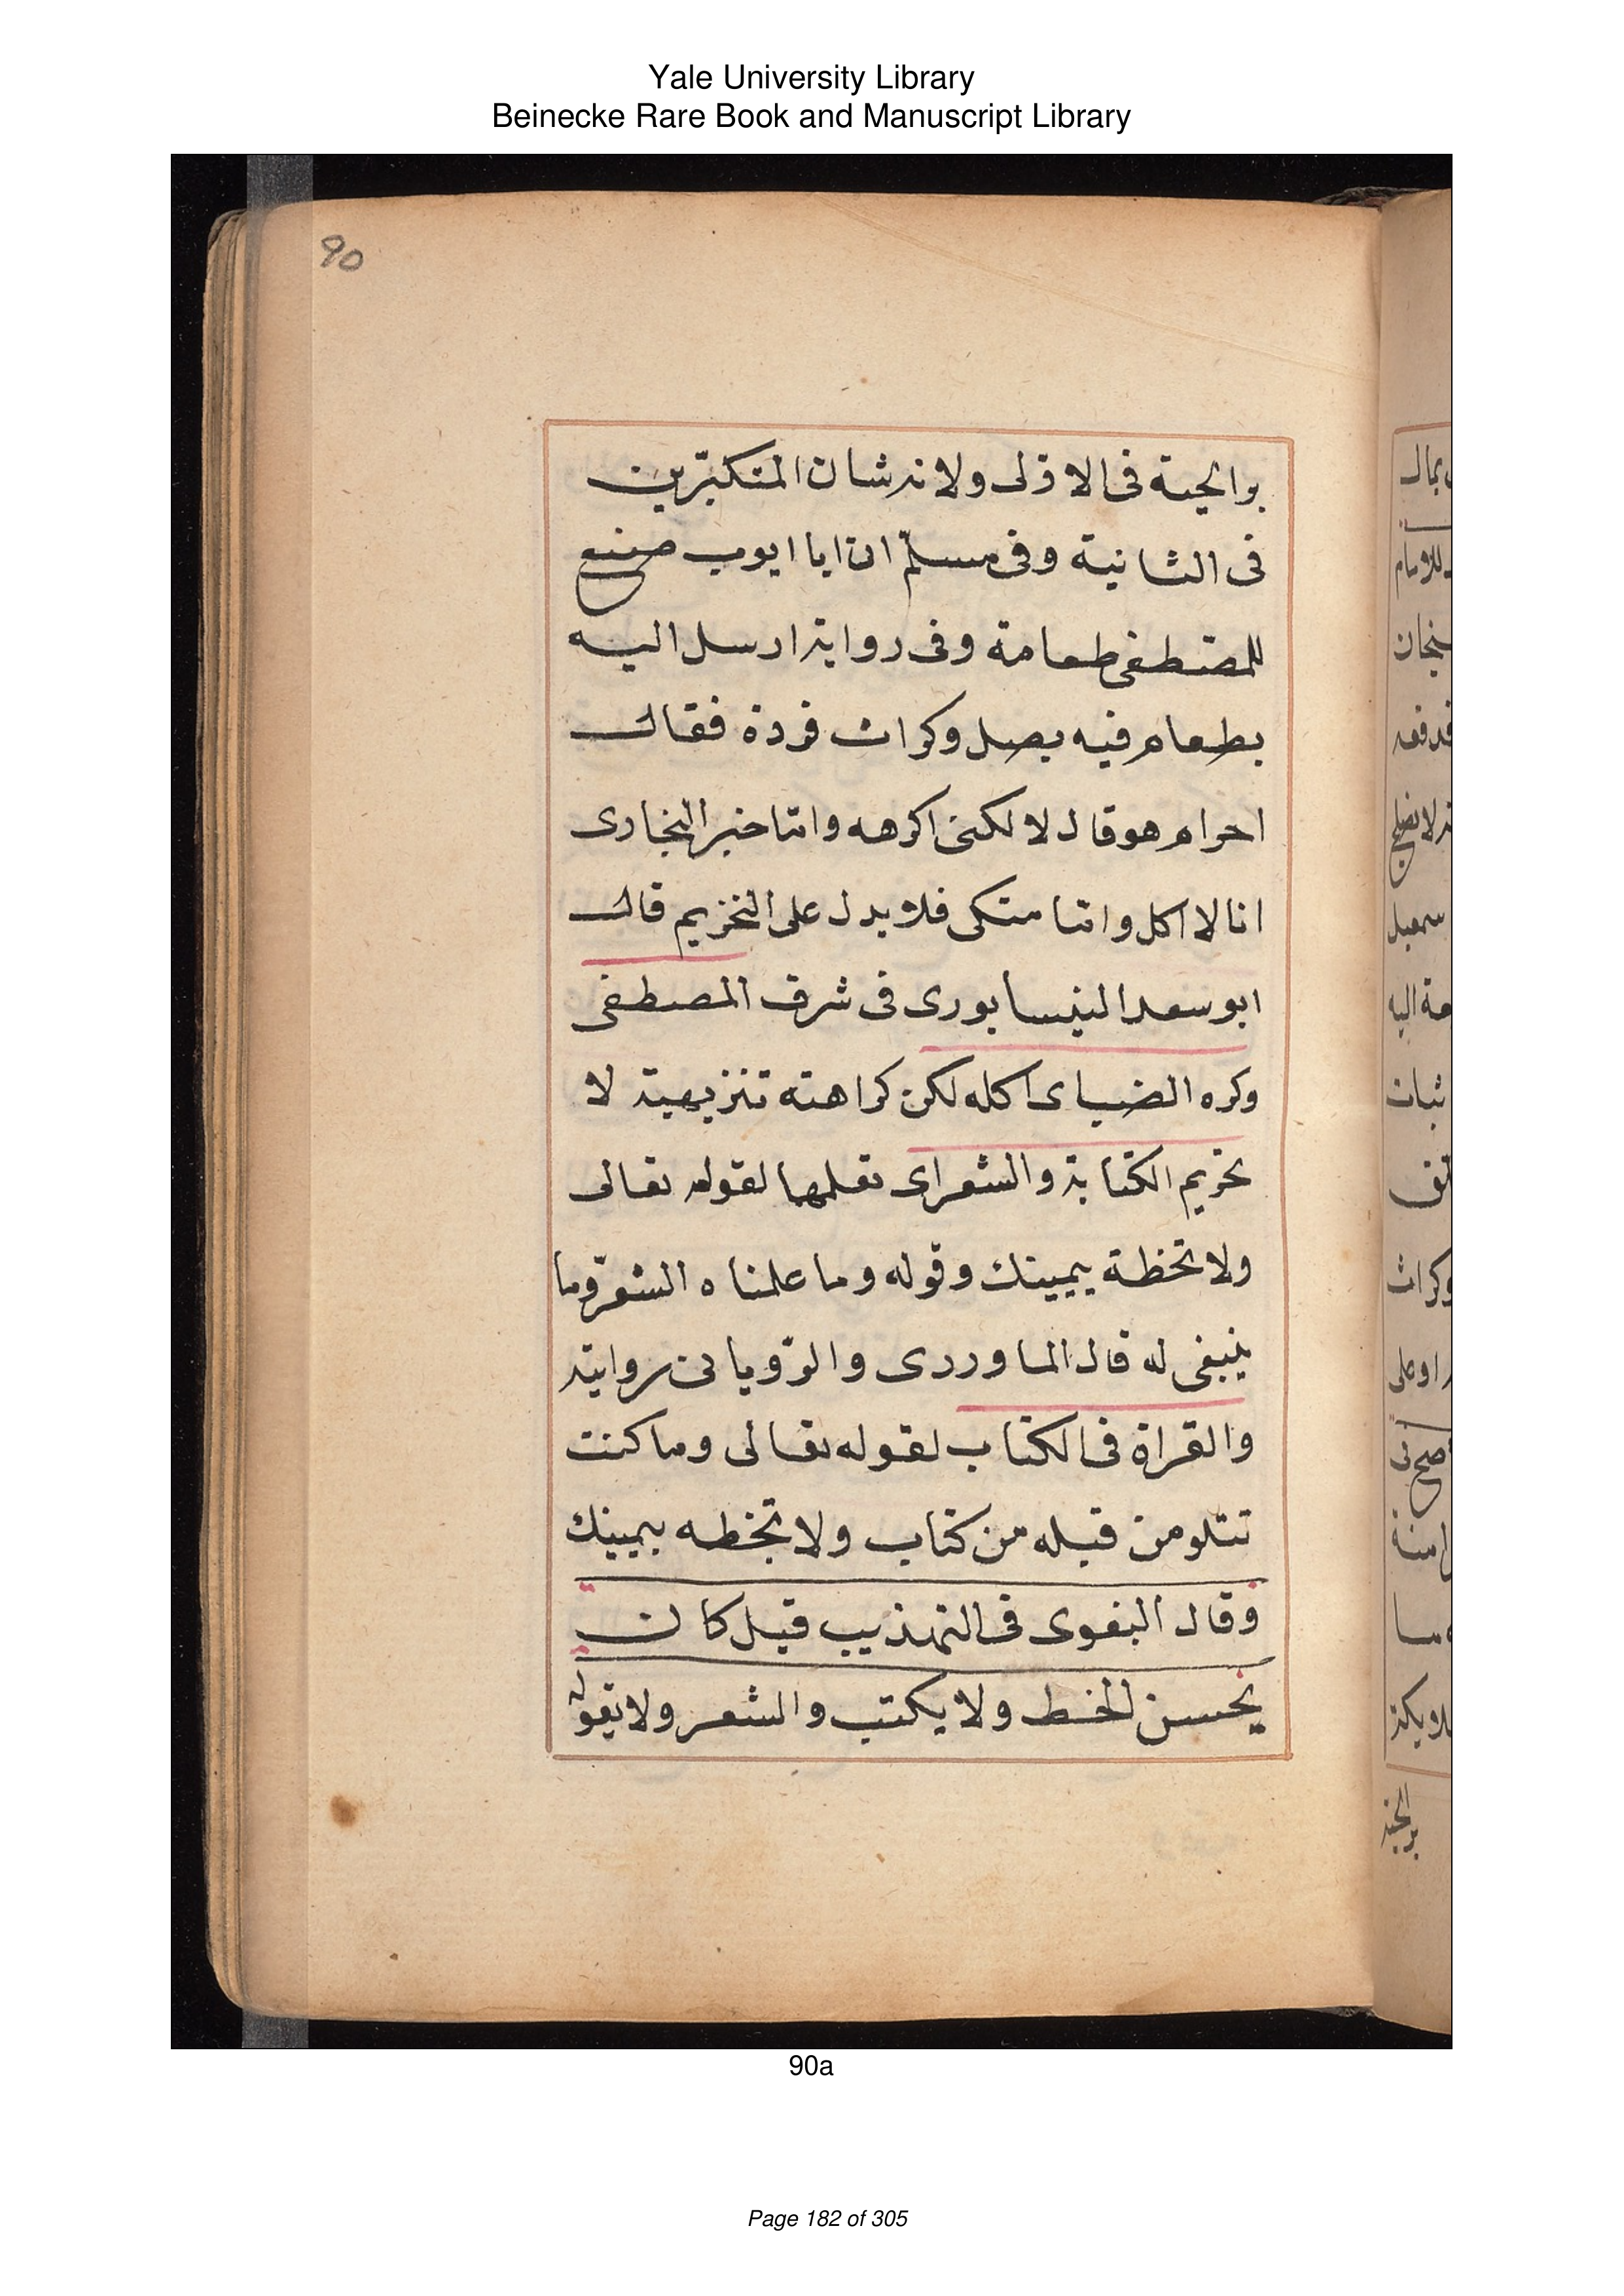 Yale University Library
Beinecke Rare Book and Manuscript Library
90
بوائحية فى الاولى ولانه شان المتكبّرين
فى الثانية وفى مسلم ان ابا ايوب صنع
للمصطفى طعامة وفى رواية ارسل اليه
بطعام فيه بصل وكراث فردة فقال
احرام هو قال لا لكنى اكرهه وامّا خبر البخارى
انا لا اكل وانا متكى فلا يدل على التحريم قال
ابو سعد النيسابورى فى شرف المصطفى
وكره الضياى اكله لكن كراهته تنزيهية لا
تحريم الكتابة والشعر اى تعلمها لقوله تعالى
ولا تخطة بيمينك وقوله وما علمناه الشعر وما
ينبغى له قال الماوردى والرويانى رواية
والقراة فى الكتاب لقوله تعالى وما كنت
تتلو من قبله من كتاب ولا تخطه بيمينك
وقال البغوى فى التهذيب قيل كان
يحسن الخط ولا يكتب والشعر ولا يقوله
90a
Page 182 of 305